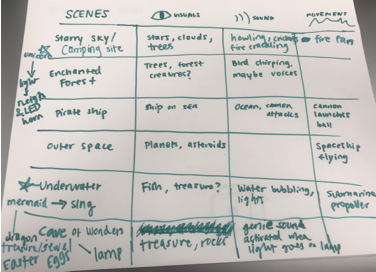 SCENES VISUALS SOUND MOVEMENT
Starry sky/ Camping site
stars, clouds, trees
howling, crickets
fire crackling
fire
unicorn
light
& LED
horn
Enchanted
Forest
Trees, forest
creatures?
Bird chirping,
maybe voices
Pirate ship
Ship on sea
Ocean, canon
attacks
cannon
launches
ball
Outer space
Planets, asteroids
Spaceship
flying
Underwater
mermaid → sing
Fish, treasure?
Water bubbling,
lights
Submarine
propeller
dragon
treasure/jewel
Easter Eggs
Cave of Wonders
lamp
treasure, rocks
genie sound
activated when
light goes on lamp